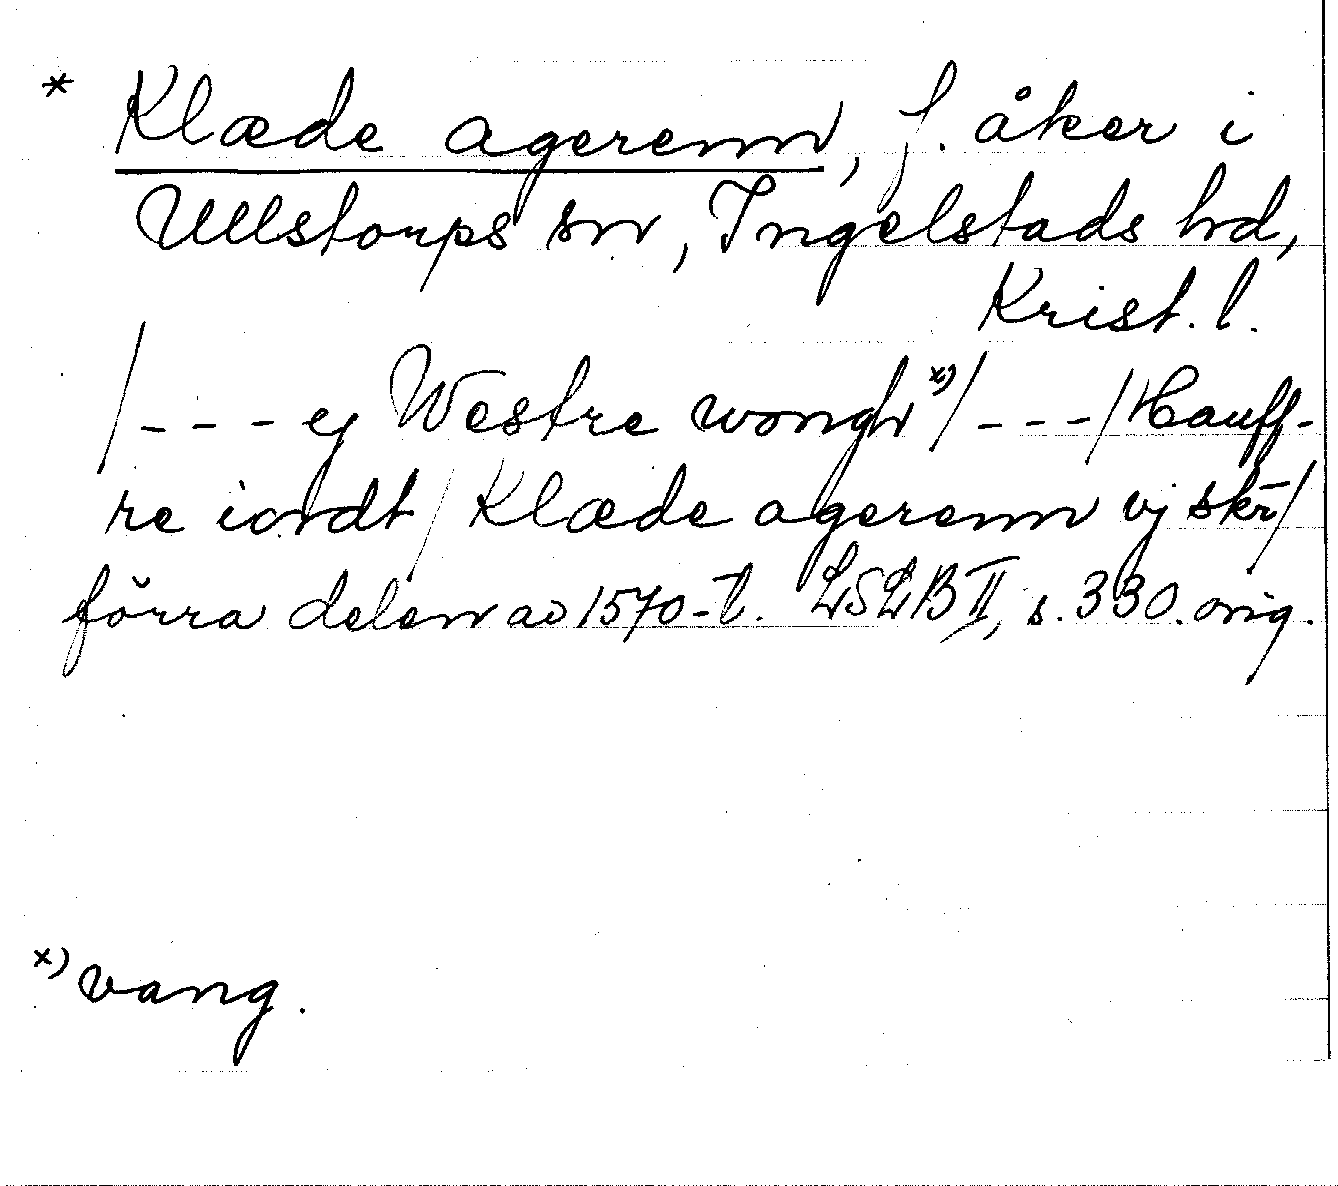 * Klæde agerenn, f. åker i
Ullstorps sn, Ingelstads hd,
Krist. l.
/--- ej Westre wongh x) / --- / Hauff-
re iordt / Klæde agerenn vj skr /
förra delen av 1570-t. LSLB II, s. 330. orig.
x) vang.